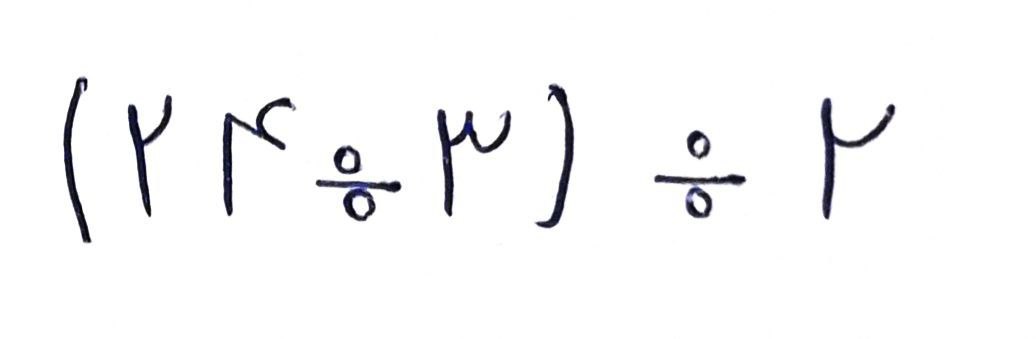 (۲۴ ÷ ۳) ÷ ۲